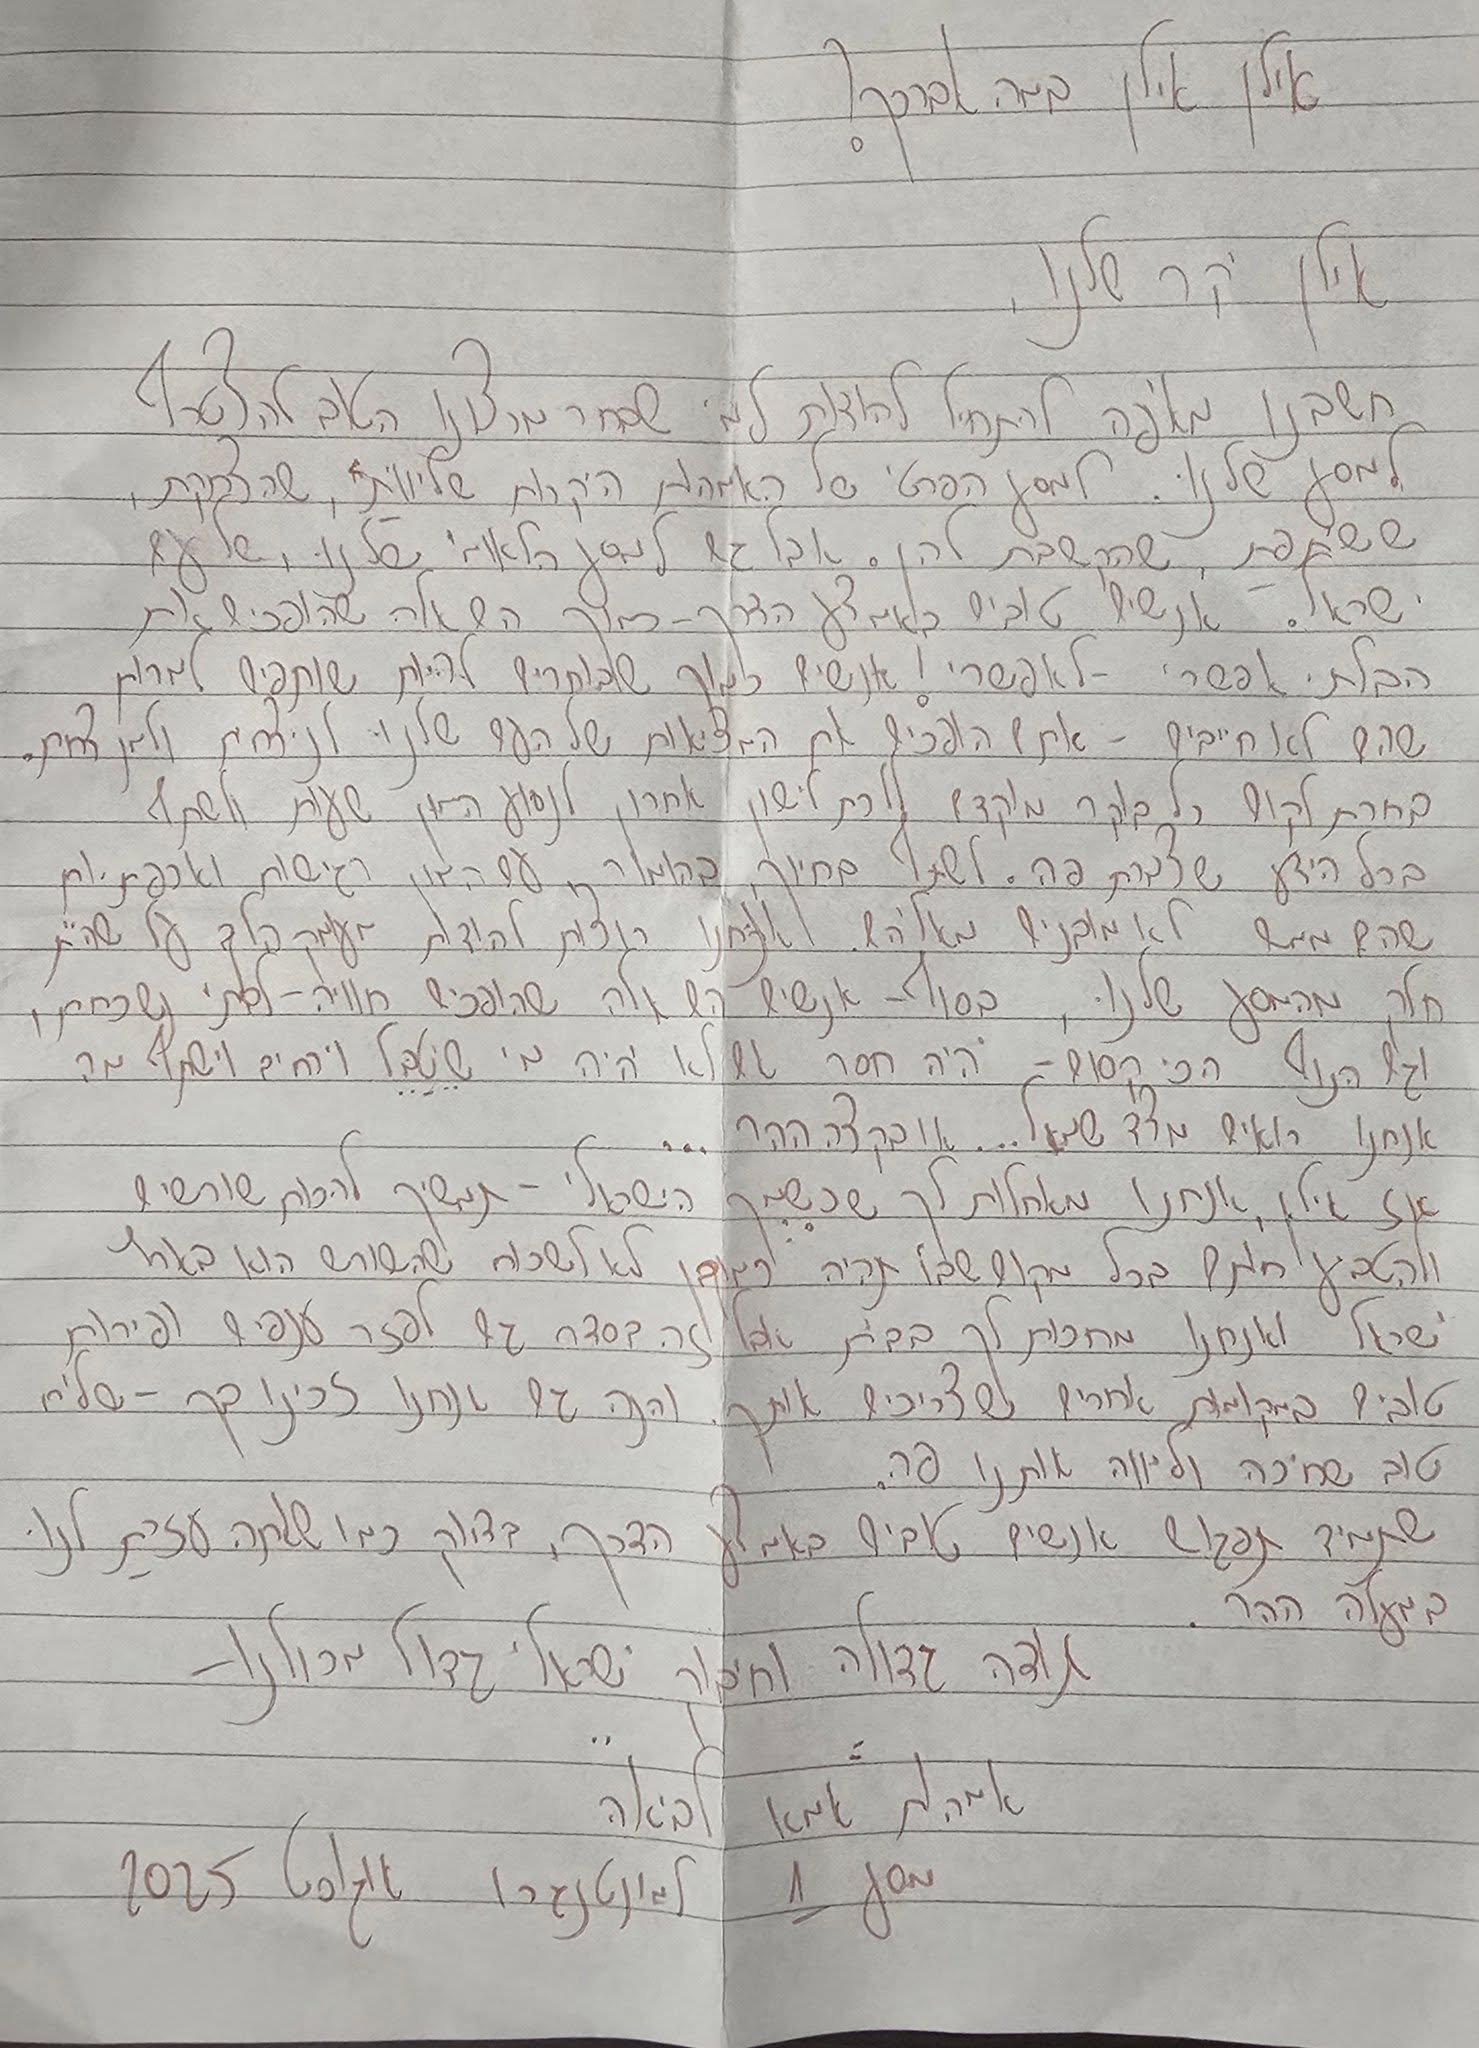 אילן אילן במה אברכך?
אילן יקר שלנו,
חשבנו מאיפה להתחיל להודות למי שבחר מרצונו הטוב להצטרף
למסע שלנו. למסע הפרטי של האמהות היקרות שליווית, שהרצקת,
ששיתפת, שהקשבת להן. אבל גם למסע הלאומי שלנו, של עם
ישראל. אנשים טובים באמצע הדרך - כמוך הם אלה שהופכים את
הבלתי אפשרי - לאפשרי! אנשים כמוך שבוחרים להיות שותפים למרות
שהם לא חייבים - אתם הופכים את המציאות של העם שלנו לניצחית ולמנצחת.
בחרת לקום כל בוקר מוקדם ללכת לישון אחרון לנסוע המון שעות ולשתף
בכל הידע שצברת פה. לשתף בחיוך, בהומור, עם המון רגישות ואכפתיות
שהם ממש לא מובנים מאליהם. ואנחנו רוצות להודות מעומק הלב על שהיית
חלק מהמסע שלנו, בסוף - אנשים הם אלה שהופכים חוויה - לבלתי נשכחת,
וגם הנוף הכי קסום - יהיה חסר אם לא יהיה מי שיטבל וירחיב וישתף מה
אנחנו רואים מצד שמאל... או בקצה ההר...
אז אילן, אנחנו מאחלות לך שכשמך הישראלי - תמשיך להכות שורשים
ולהטביע חותם בכל מקום שבו תהיה כמובן לא לשכוח שהשורש הוא בארץ
ישראל ואנחנו מחכות לך בבית אבל זה בסדר גם לפזר ענפים ופירות
טובים במקומות אחרים שצריכים אותך. והנה גם אנחנו זכינו בך - שליח
טוב שחיכה וליווה אותנו פה.
שתמיד תפגוש אנשים טובים באמצע הדרך, בדיוק כמו שאתה עזרת לנו
במעלה ההר.
תודה גדולה וחיבוק ישראלי גדול מכולנו -
אמהות אמא לביאה
מסע 1 למונטנגרו אוגוסט 2025